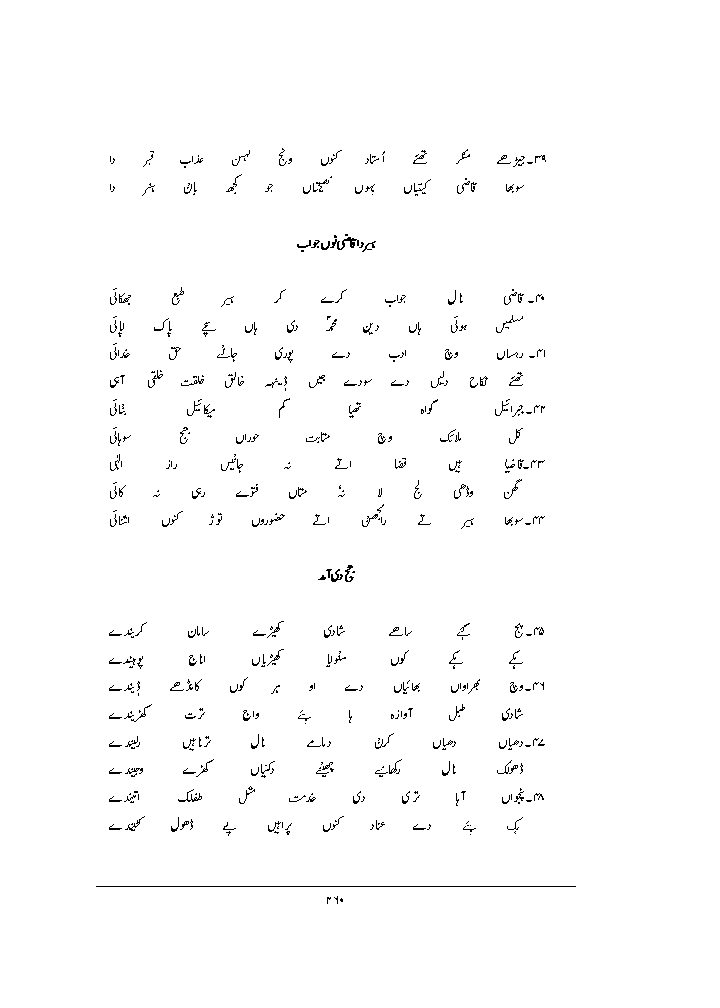 ۳۹۔ جیڑھے منکر تھئے اُستاد کنوں ونج لہسن عذاب قبر دا
سوبھا قاضی کیتیاں بہوں نصیحتاں جو کجھ ہانس ہنر دا
ہیر دا قاضی نوں جواب
۴۰۔ قاضی نال جواب کرے کر ہیر طبع جھکائی
مسلمیں ہوئی ہاں دین محمدؐ دی ہاں سچے پاک لپائی
۴۱۔ رہساں وچ ادب دے پوری جانے حق خدائی
تھئے نکاح دلیں دے سودے جیں ڈینہہ خالق خلقت خلقی آہی
۴۲۔ جبرائیل گواہ تھیا کم میکائیل بنائی
کل ملائک وچ متابت حوراں جنج سوہائی
۴۳۔ قاضیا ہیں قضا اتے نہ جانیں راز الٰہی
گھن وڈھی لج لا نہ متاں فتوے رہی نہ کائی
۴۴۔ سوبھا ہیر تے رانجھن اتے حضوروں توڑ کنوں اشنائی
جنج دی آمد
۴۵۔ جنج کیے ساھے شادی کھیڑے سامان کریندے
ہکے ہکے کوں مقولا کھیڑیاں اناج پوہیندے
۴۶۔ وچ بھراواں بھائیاں دے او ہر کوں کانڈھے ڈیندے
شادی طبل آوازہ ہا بئے واج ترت کھڑیندے
۴۷۔ دھیاں دھیاں کرن دمامے نال ترناہیں رلیندے
ڈھولک نال رکھائیے چھینے دکنیاں کھڑے وجیندے
۴۸۔ پنجواں آہا تری دی خدمت مثل طفلک اتیندے
ہک بئے دے عناد کنوں پراہیں پے ڈھول کٹیندے
۳۶۰